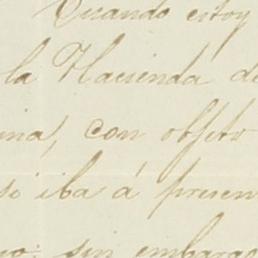 Quando estoy
la Hacienda de
ina, con objeto
si iba á presen
sin embargo